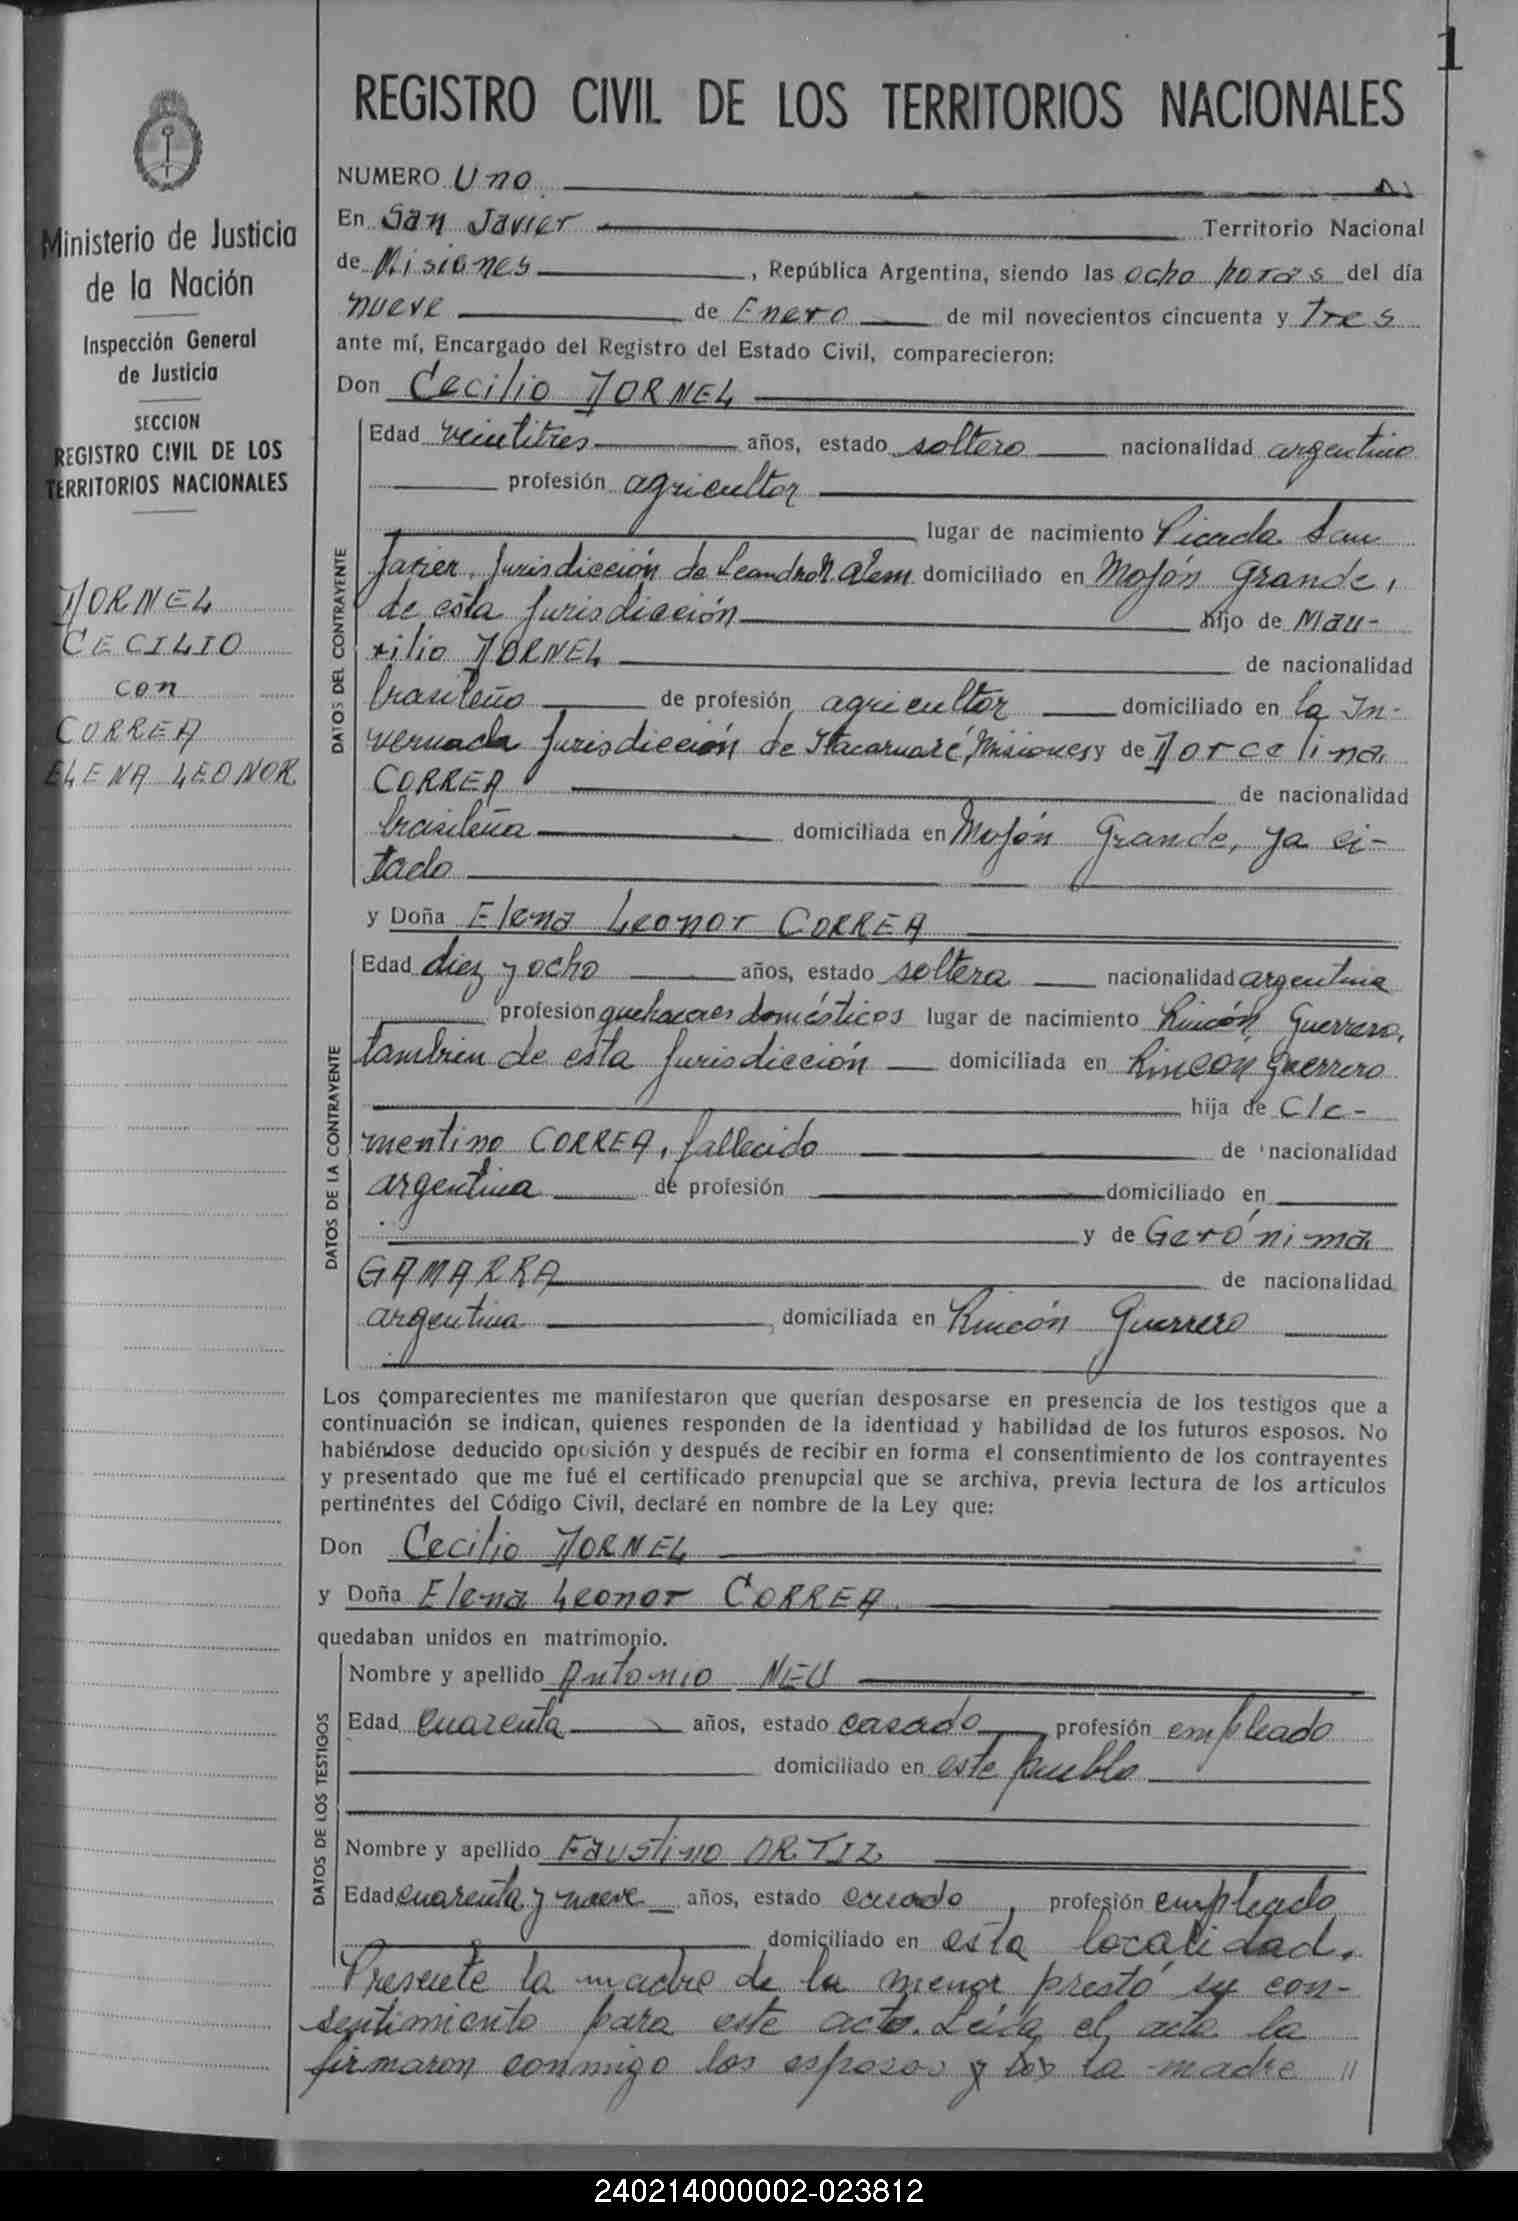 1
REGISTRO CIVIL DE LOS TERRITORIOS NACIONALES
Ministerio de Justicia
de la Nación
Inspección General
de Justicia
SECCION
REGISTRO CIVIL DE LOS
TERRITORIOS NACIONALES
DORNEL
CECILIO
con
CORREA
ELENA LEONOR
NUMERO Uno
En San Javier Territorio Nacional
de Misiones, República Argentina, siendo las ocho horas del día
nueve de Enero de mil novecientos cincuenta y tres
ante mí, Encargado del Registro del Estado Civil, comparecieron:
Don Cecilio DORNEL
DATOS DEL CONTRAYENTE
Edad veintitres años, estado soltero nacionalidad argentino
profesión agricultor
lugar de nacimiento Picada San
Javier, Jurisdicción de Leandro N. Alem domiciliado en Mojón Grande,
de esta Jurisdicción hijo de Mau-
rilio DORNEL de nacionalidad
brasileño de profesión agricultor domiciliado en la In-
vernada Jurisdicción de Itacaruaré, Misiones y de Dorcelina
CORREA de nacionalidad
brasileña domiciliada en Mojón Grande, ya ci-
tado
y Doña Elena Leonor CORREA
DATOS DE LA CONTRAYENTE
Edad diez y ocho años, estado soltera nacionalidad argentina
profesión quehaceres domésticos lugar de nacimiento Rincón Guerrero,
tambien de esta Jurisdicción domiciliada en Rincón Guerrero
hija de Cle-
mentino CORREA, fallecido de nacionalidad
argentina de profesión domiciliado en
y de Gerónima
GAMARRA de nacionalidad
argentina domiciliada en Rincón Guerrero
Los comparecientes me manifestaron que querían desposarse en presencia de los testigos que a
continuación se indican, quienes responden de la identidad y habilidad de los futuros esposos. No
habiéndose deducido oposición y después de recibir en forma el consentimiento de los contrayentes
y presentado que me fué el certificado prenupcial que se archiva, previa lectura de los artículos
pertinentes del Código Civil, declaré en nombre de la Ley que:
Don Cecilio DORNEL
y Doña Elena Leonor CORREA
quedaban unidos en matrimonio.
DATOS DE LOS TESTIGOS
Nombre y apellido Antonio NEU
Edad cuarenta años, estado casado profesión empleado
domiciliado en este pueblo
Nombre y apellido Faustino ORTIZ
Edad cuarenta y nueve años, estado casado, profesión empleado
domiciliado en esta localidad.
Presente la madre de la menor prestó su con-
sentimiento para este acto. Leida el acta la
firmaron conmigo los esposos y la madre //
240214000002-023812